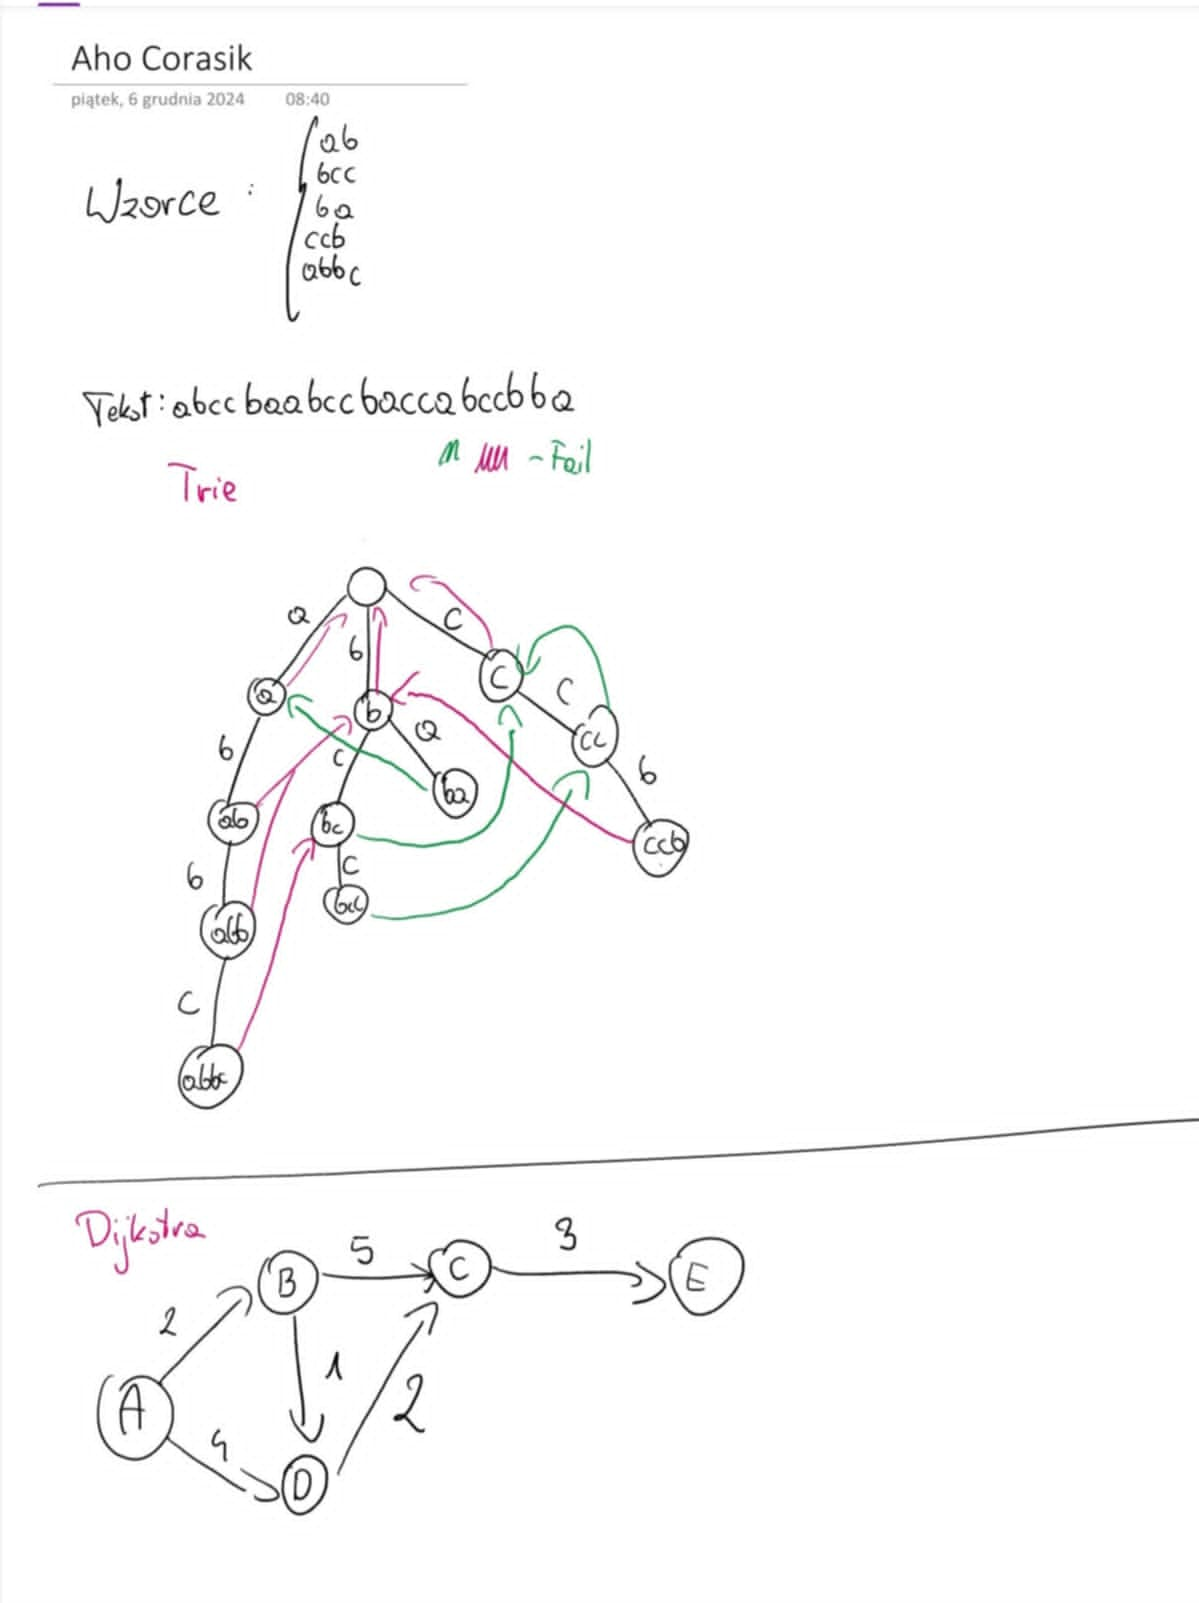 Aho Corasik
piątek, 6 grudnia 2024 08:40
Wzorce :
ab
bcc
ba
ccb
abbc
Tekst: abccbaabccbaccabccbba
- Fail
Trie
a
b
c
a
b
c
a
c
b
c
cc
ab
b
ba
bc
b
c
ccb
bcc
abb
c
abbc
Dijkstra
5
3
B
C
E
2
1
A
2
4
D